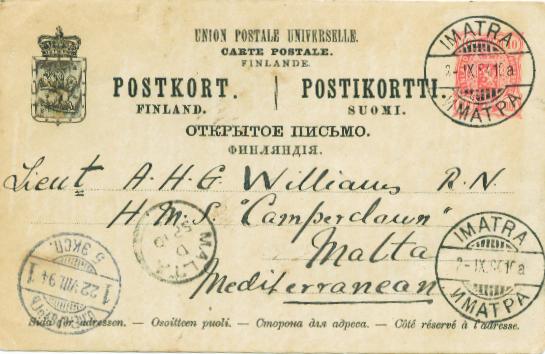 UNION POSTALE UNIVERSELLE.
CARTE POSTALE.
FINLANDE.
POSTKORT.
FINLAND.
POSTIKORTTI.
SUOMI.
ОТКРЫТОЕ ПИСЬМО.
ФИНЛЯНДІЯ.
IMATRA
2-IX.94 10a
ИМАТРА
10
Lieut A. H. G Williams R. N.
H. M. S. "Camperdown"
Malta
Mediterranean
MALTA
IMATRA
2-IX.94 10a
ИМАТРА
5 ЭКСП.
1 22 VIII. 94 1
Sida för adressen. — Osoitteen puoli. — Сторона для адреса. — Côté réservé à l'adresse.